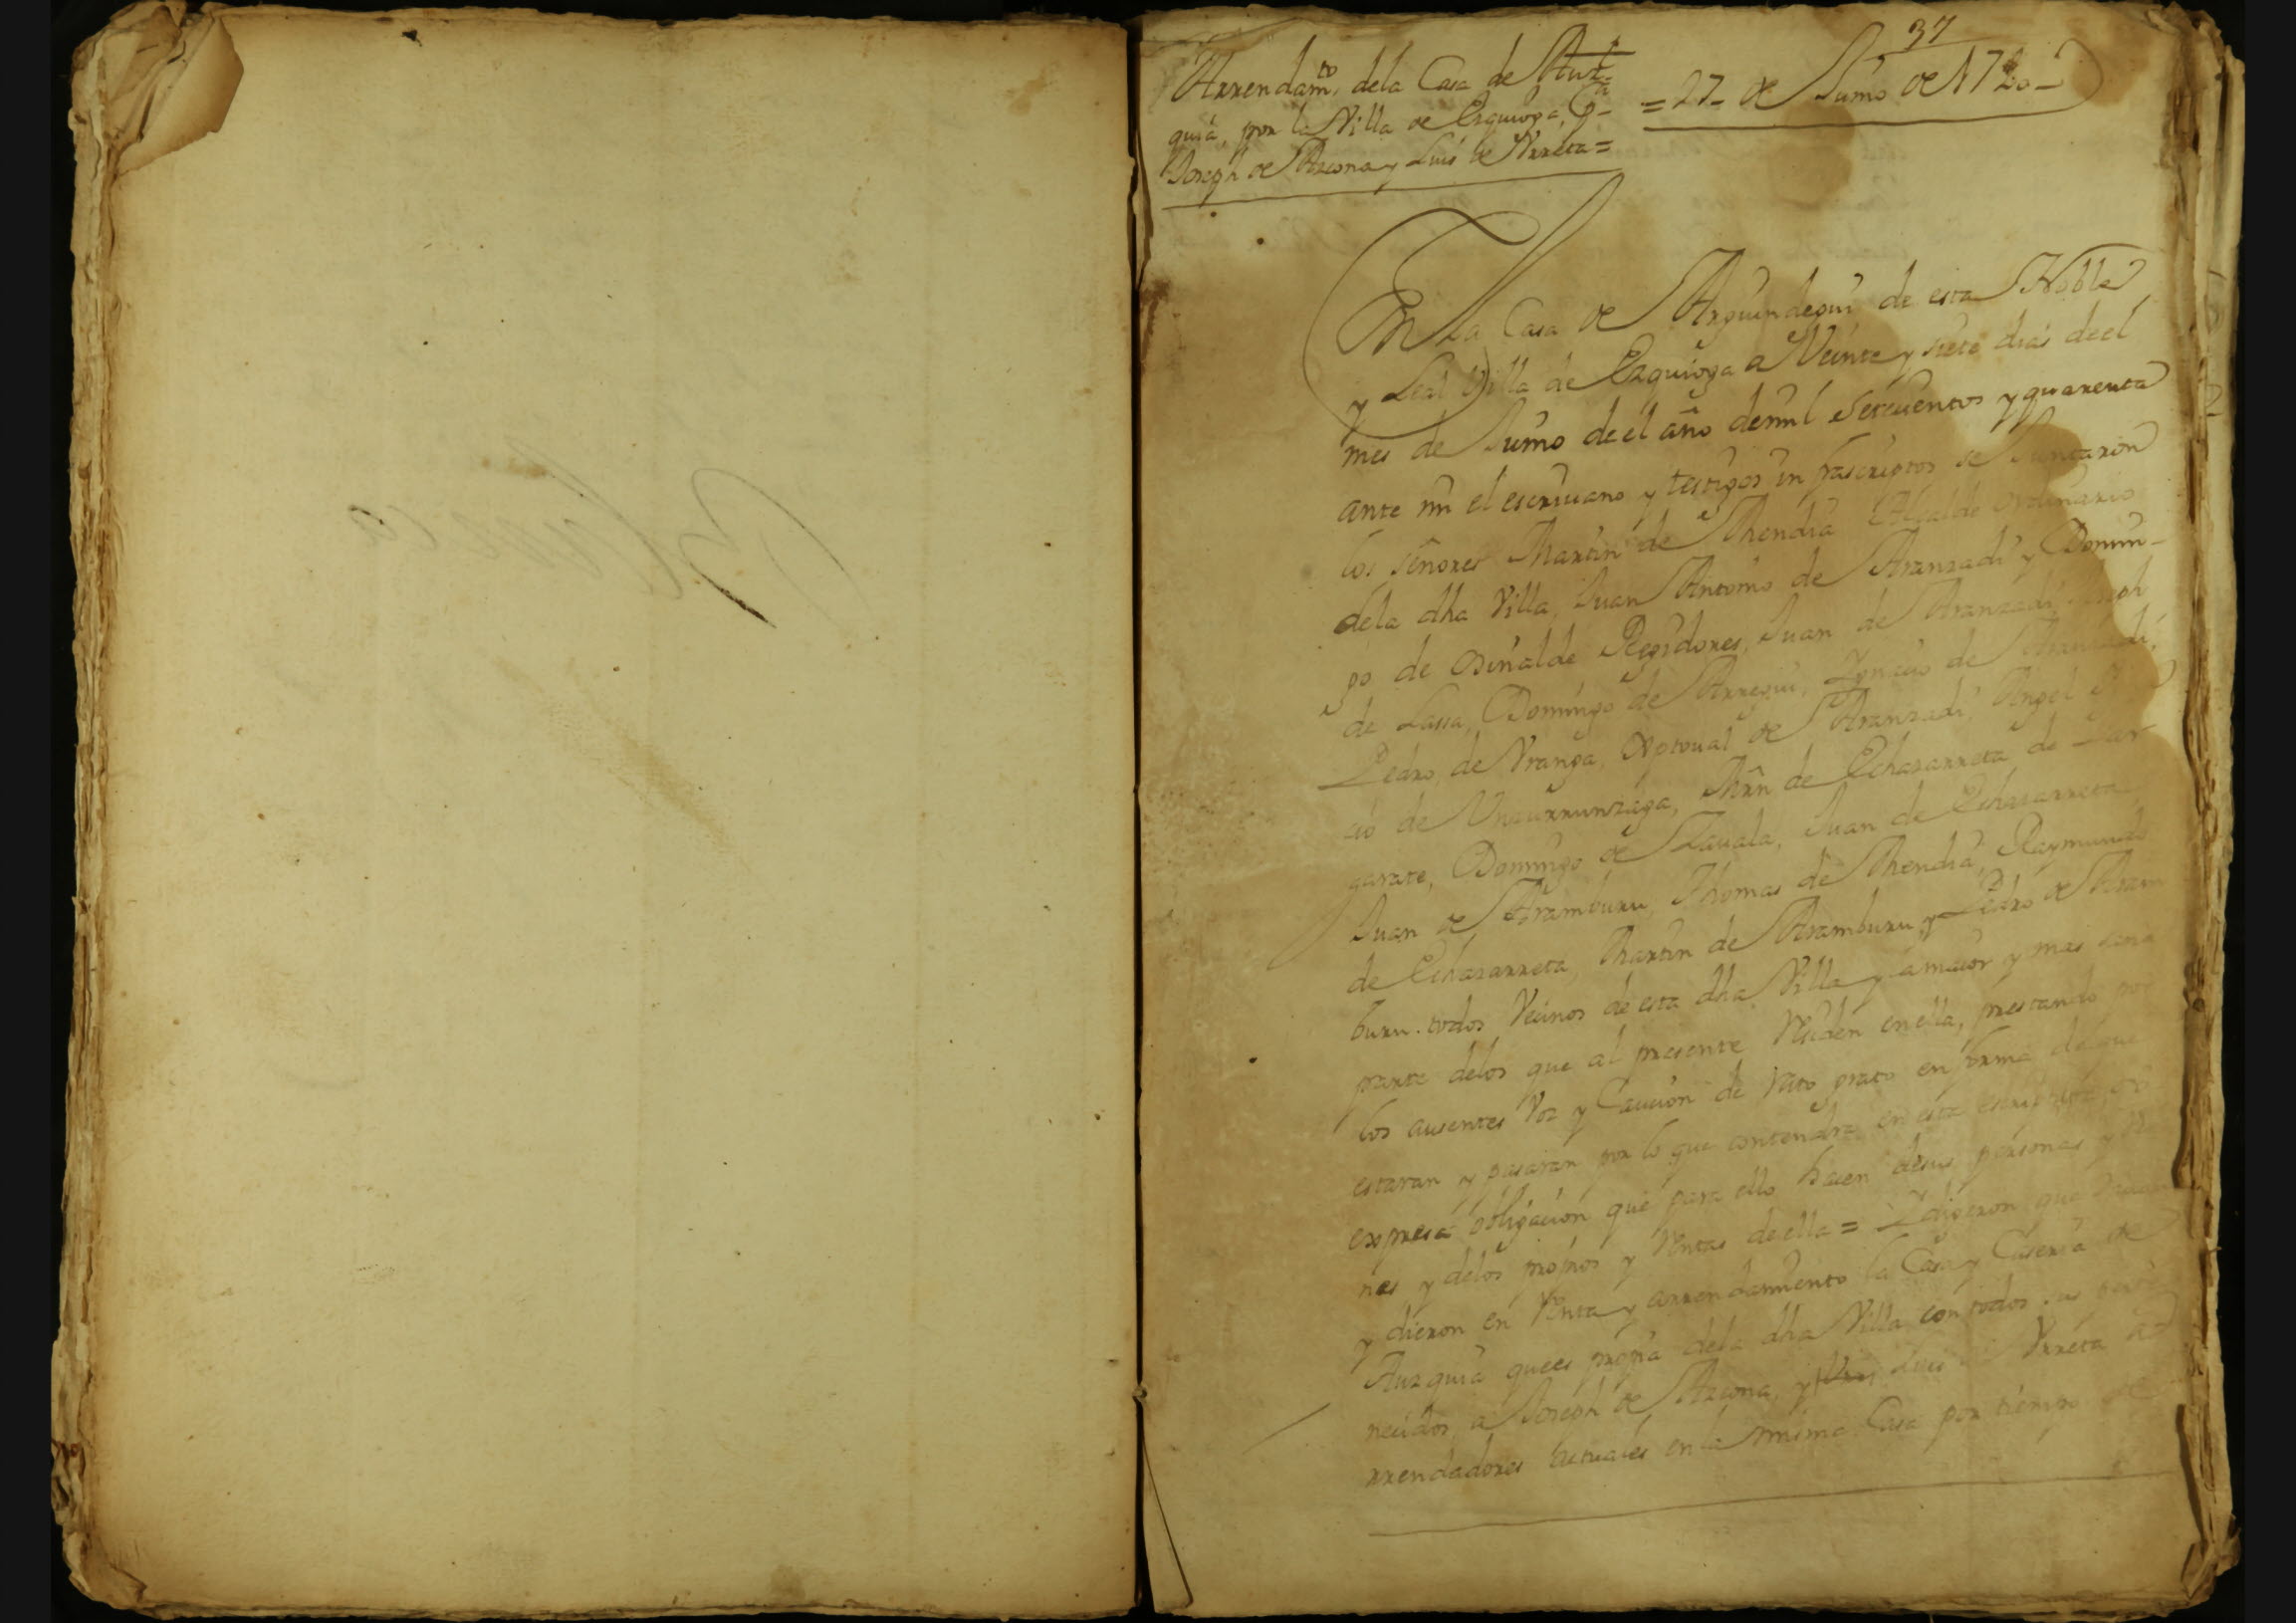 37
Arrendam.to dela Casa de Auz-
quia, por la Villa de Ezquioga, Ca
Joseph de Azcona y Luis de Urreta =
= 27- de Junio de 1740-
En la Casa de Arguindegui de esta Noble
y Leal Villa de Ezquioga a Veinte y siete dias de el
mes de Junio de el año demil Setecientos y quarenta
ante mi el escriuano y testigos infrascriptos se Juntaron
los señores Martin de Mendia Alcalde ordinario
dela dha Villa, Juan Antonio de Aranzadi y Domin-
go de osinalde Regidores, Juan de Aranzadi, Joseph
de Lassa, Domingo de Arregui, Ignacio de Aranzadi,
Pedro de Vranga, Xptoual de Aranzadi, Angel
cio de Unzurrunzaga, Mrn de Echazarreta de Lar
garate, Domingo de Zauala, Juan de Echazarreta
Juan de Aramburu, Thomas de Mendia, Raymundo
de Echazarreta, Martin de Aramburu y Pedro de Aram
buru. todos Vecinos de esta dha Villa y a maior y mas sana
parte delos que al presente Residen en ella, prestando por
los ausentes Voz y Caucion de rato grato en forma de que
estaran y pasaran por lo que contendra en esta escriptura, so
expresa obligacion que para ello hacen desus personas y vie
nes y delos propios y Rentas de ella = I digeron que dauan
y dieron en Renta y arrendamiento la Casa y Caseria de
Auzquia quees propia dela dha Villa con todos sus perte
necidos, a Joseph de Azcona, y Luis de Urreta
rrendadores actuales en la misma Casa por tiempo de